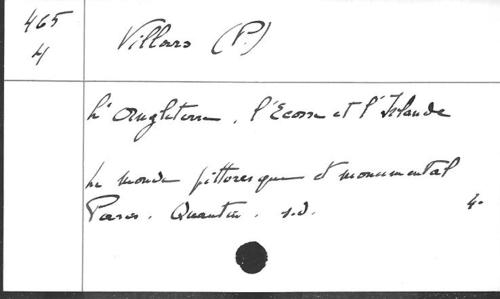 465
4
Villars (P.)
L'Angleterre, l'Ecosse et l'Islande
Le monde pittoresque et monumental
Paris. Quantin. s.d. 4.